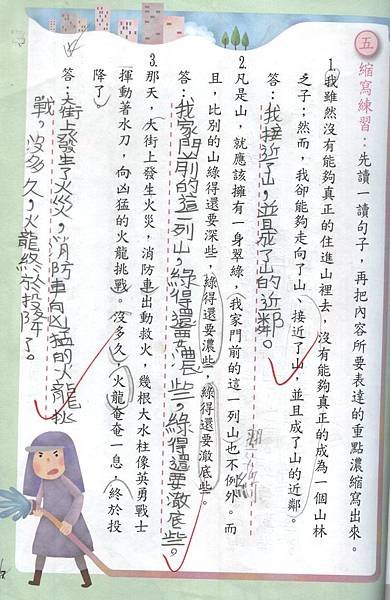 五 縮寫練習：先讀一讀句子，再把內容所要表達的重點濃縮寫出來。
1.我雖然沒有能夠真正的住進山裡去，沒有能夠真正的成為一個山林
之子；然而，我卻能夠走向了山、接近了山，並且成了山的近鄰。
答：我接近了山，並且成了山的近鄰。
2.凡是山，就應該擁有一身翠綠，我家門前的這一列山也不例外。而
且，比別的山綠得還要深些，綠得還要濃些，綠得還要徹底些。
答：我家門前的這一列山，綠得還要濃些，綠得還要徹底些。
3.那天，大街上發生火災，消防車出動救火，幾根大水柱像英勇戰士
揮動著水刀，向凶猛的火龍挑戰。沒多久，火龍奄奄一息，終於投
降了。
答：大街上發生了火災，消防車向凶猛的火龍挑
戰。沒多久，火龍終於投降了。